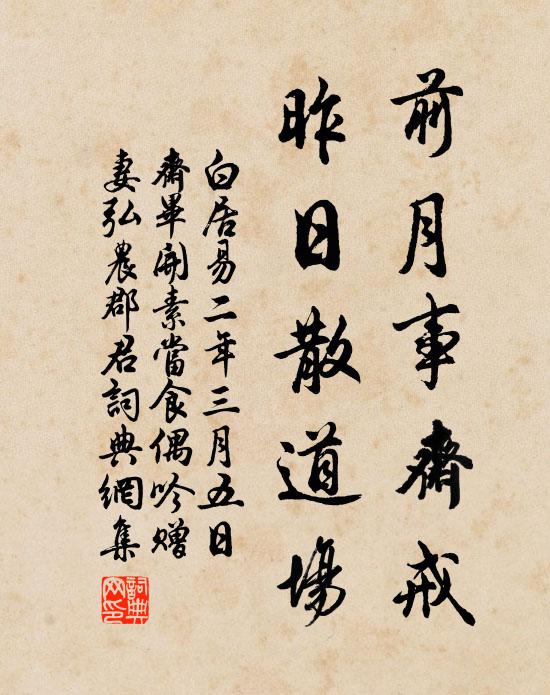 前月事齋戒
昨日散道場
白居易二年三月五日
齋畢開素當食偶吟贈
妻弘農郡君詞典網集
詞典网印